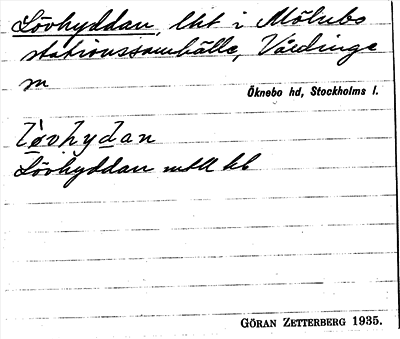 Lövhyddan, lht i Mölnbo
stationssamhälle, Vårdinge
sn
Öknebo hd, Stockholms l.
Lövhyddan mtl kb
GÖRAN ZETTERBERG 1935.